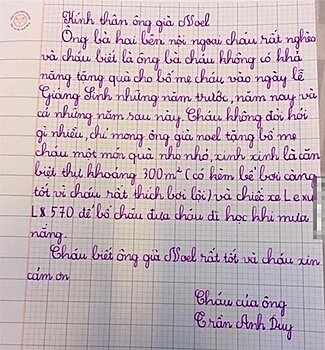 Kính thân ông già Noel
Ông bà hai bên nội ngoại cháu rất nghèo
và cháu biết là ông bà cháu không có khả
năng tặng quà cho bố mẹ cháu vào ngày lễ
Giáng Sinh những năm trước, năm nay và
cả những năm sau này. Cháu không đòi hỏi
gì nhiều, chỉ mong ông già noel tặng bố mẹ
cháu một món quà nho nhỏ, xinh xinh là căn
biệt thự khoảng 300m² (có kèm bể bơi càng
tốt vì cháu rất thích bơi lội) và chiếc xe Lexu
LX 570 để bố cháu đưa cháu đi học khi mưa
nắng.
Cháu biết ông già Noel rất tốt và cháu xin
cám ơn
Cháu của ông
Trần Anh Duy